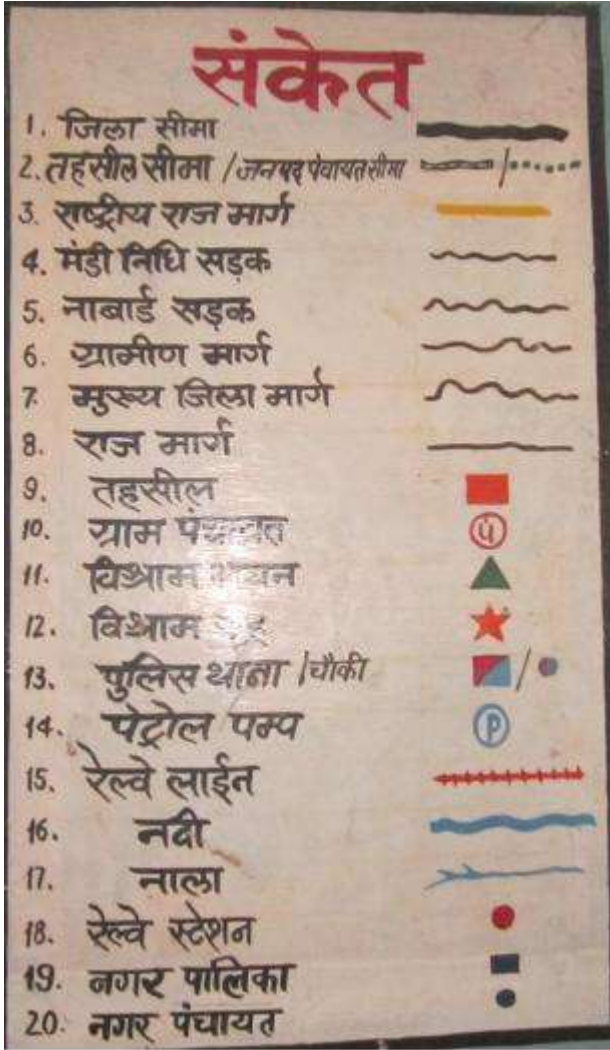 संकेत
1. जिला सीमा
2. तहसील सीमा / जनपद पंचायत सीमा /
3. राष्ट्रीय राज मार्ग
4. मंडी निधि सड़क
5. नाबार्ड सड़क
6. ग्रामीण मार्ग
7. मुख्य जिला मार्ग
8. राज मार्ग
9. तहसील
10. ग्राम पंचायत पं
11. विश्राम भवन
12. विश्राम
13. पुलिस थाना / चौकी /
14. पेट्रोल पम्प P
15. रेल्वे लाईन
16. नदी
17. नाला
18. रेल्वे स्टेशन
19. नगर पालिका
20. नगर पंचायत